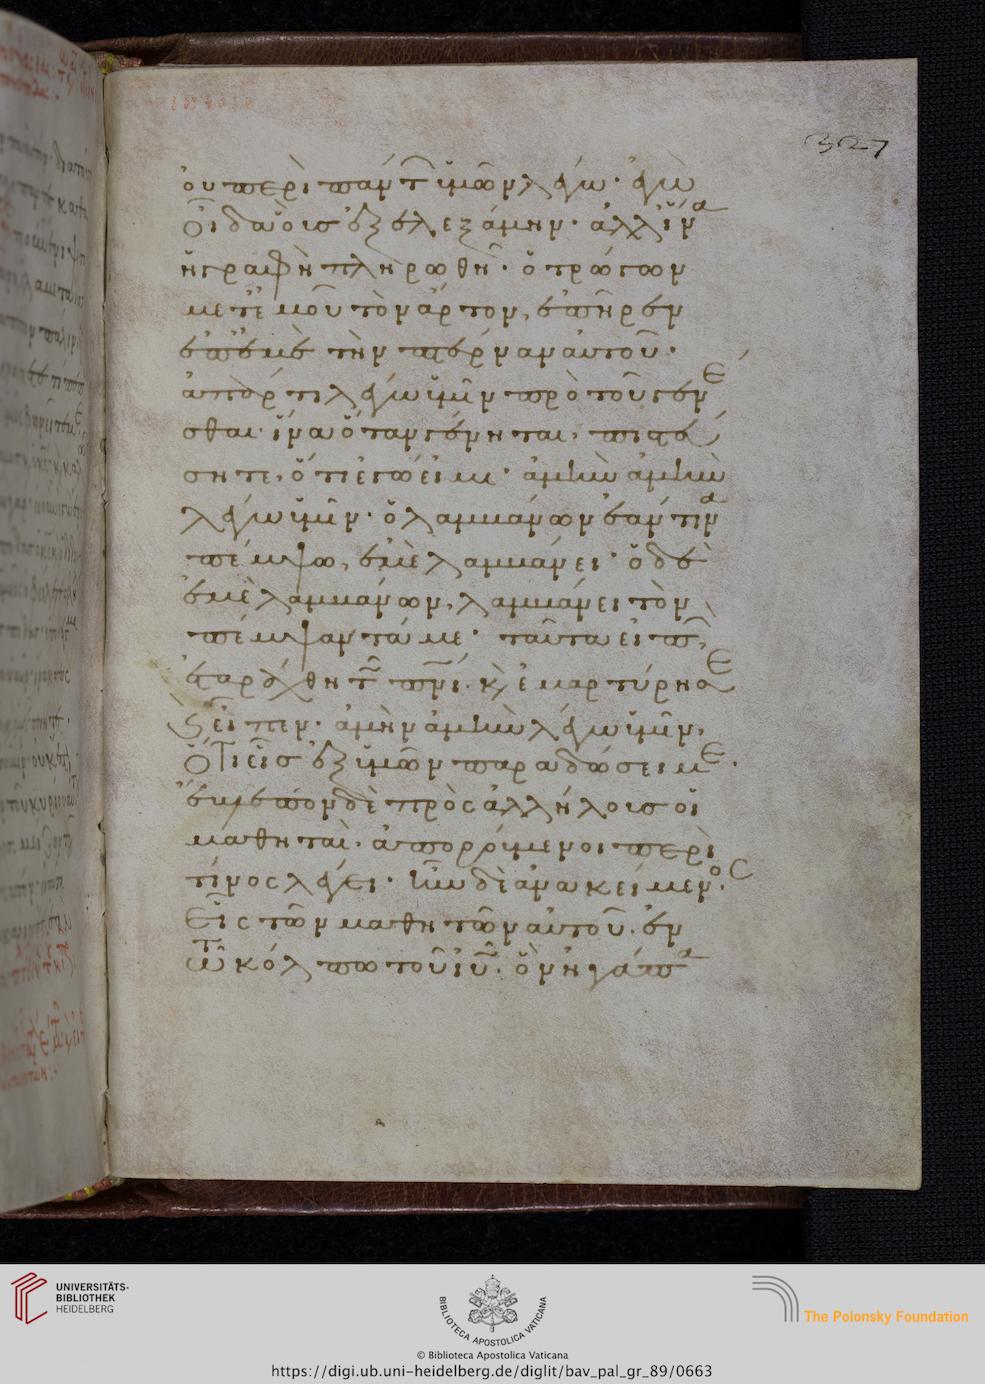 327
οὐ περὶ πάντ ὑμῶν λέγω· ἐγὼ
οἶδα οὓς ἐξελεξάμην· ἀλλ ἵνα
ἡ γραφὴ πληρωθῆ· ὁ τρώγων
μετ ἐμοῦ τὸν ἄρτον, ἐπῆρεν
ἐπ ἐμὲ τὴν πτέρναν αὐτοῦ·
ἀπ ἄρτι λέγω ὑμῖν πρὸ τοῦ γενέ
σθαι· ἵνα ὅταν γένηται, πιστεύ
σητε, ὅτι ἐγώ εἰμι· ἀμὴν ἀμὴν
λέγω ὑμῖν· ὁ λαμβάνων ἐάν τινα
πέμψω, ἐμὲ λαμβάνει· ὁ δὲ
ἐμὲ λαμβάνων, λαμβάνει τὸν
πέμψαντά με· ταῦτα εἰπ
ἐταράχθη τ πνι· κ ἐμαρτύρησε
κ εἶπεν· ἀμὴν ἀμὴν λέγω ὑμῖν,
ὅτι εἷς ἐξ ὑμῶν παραδώσει με·
ἔβλεπον δὲ πρὸς ἀλλήλοις οἱ
μαθηταὶ· ἀπορούμενοι περὶ
τίνος λέγει· ἦν δὲ ἀνακείμενος
εἷς τῶν μαθητῶν αὐτοῦ· ἐν
τῶ κόλπω τοῦ ιυ· ὃν ἠγάπα
UNIVERSITÄTS-
BIBLIOTHEK
HEIDELBERG
BIBLIOTECA APOSTOLICA VATICANA
The Polonsky Foundation
© Biblioteca Apostolica Vaticana
https://digi.ub.uni-heidelberg.de/diglit/bav_pal_gr_89/0663